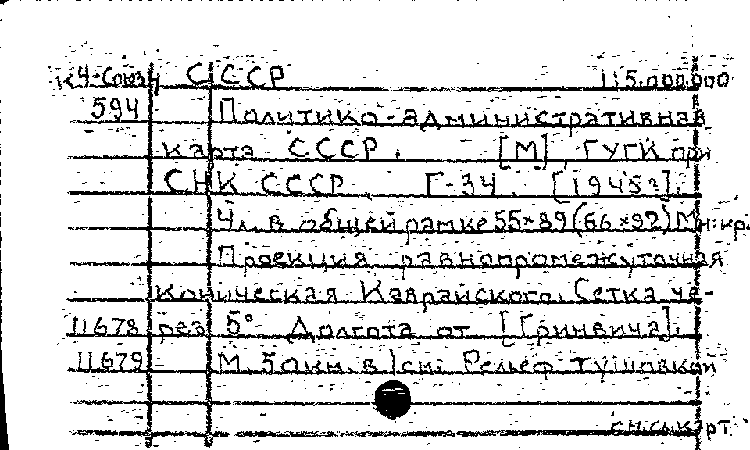 К4-Союз СССР 1:5.000.000
594 Политико-административная
карта СССР. [М], ГУГК при
СНК СССР Г-34. [1945г].
4 л. в общей рамке 55×89 (66×92) Мн: кр.
Проекция равнопромежуточная
коническая Каврайского. Сетка че-
11678 рез 5° Долгота от [Гринвича].
11679 М. 50 км. в 1 см. Рельеф тушовкой